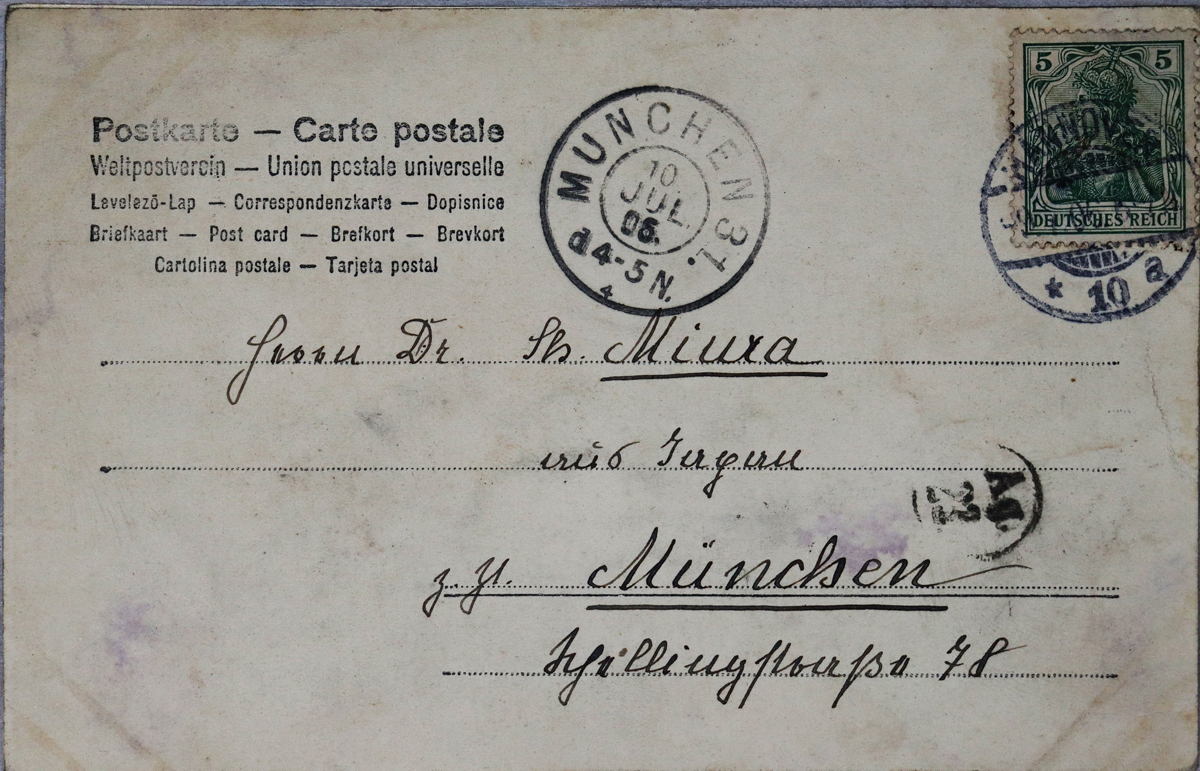 Postkarte — Carte postale
Weltpostverein — Union postale universelle
Levelező-Lap — Correspondenzkarte — Dopisnice
Briefkaart — Post card — Brefkort — Brevkort
Cartolina postale — Tarjeta postal
MÜNCHEN 31.
10
JUL.
06.
d 4-5 N.
5 5
DEUTSCHES REICH
HANNOVER
* 10 a
Herrn Dr. Miura
aus Japan
Ag.
22
z. Zt. München
Schellingstraße 78